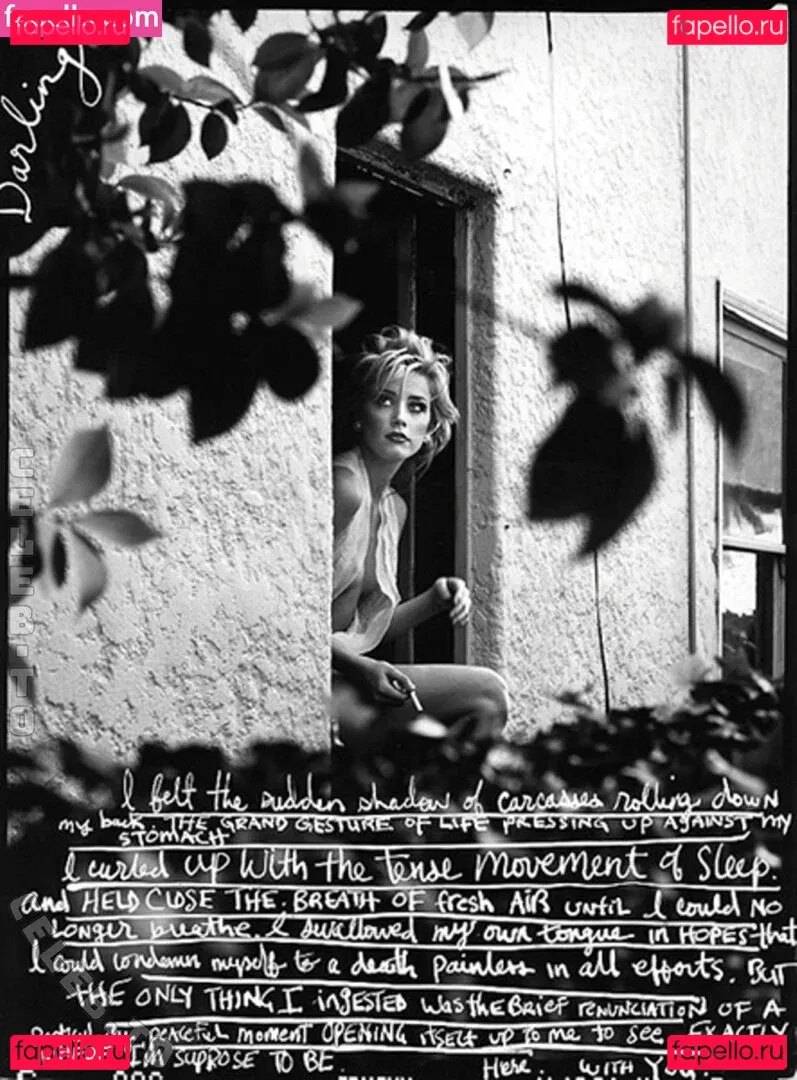 fapello.com
fapello.ru
fapello.ru
Darling
CELEB.TO
I felt the sudden shadow of carcasses rolling down
my back. THE GRAND GESTURE OF LIFE PRESSING UP AGAINST MY
STOMACH
I curled UP With the tense Movement of Sleep.
and HELD CLOSE THE. BREATH OF fresh AIR UNTIL I could NO
LONGER breathe. I swallowed my own tongue IN HOPES that
I could condemn myself to a death painless in all efforts. BUT
THE ONLY THING I iNgESTED was the Brief RENUNCIATION OF A
peaceful moment OPENING itself up TO me TO see EXACTLY
I'M SUPROSE TO BE. Here. WITH. You.
fapello.ru
fapello.ru
CELEB.TO